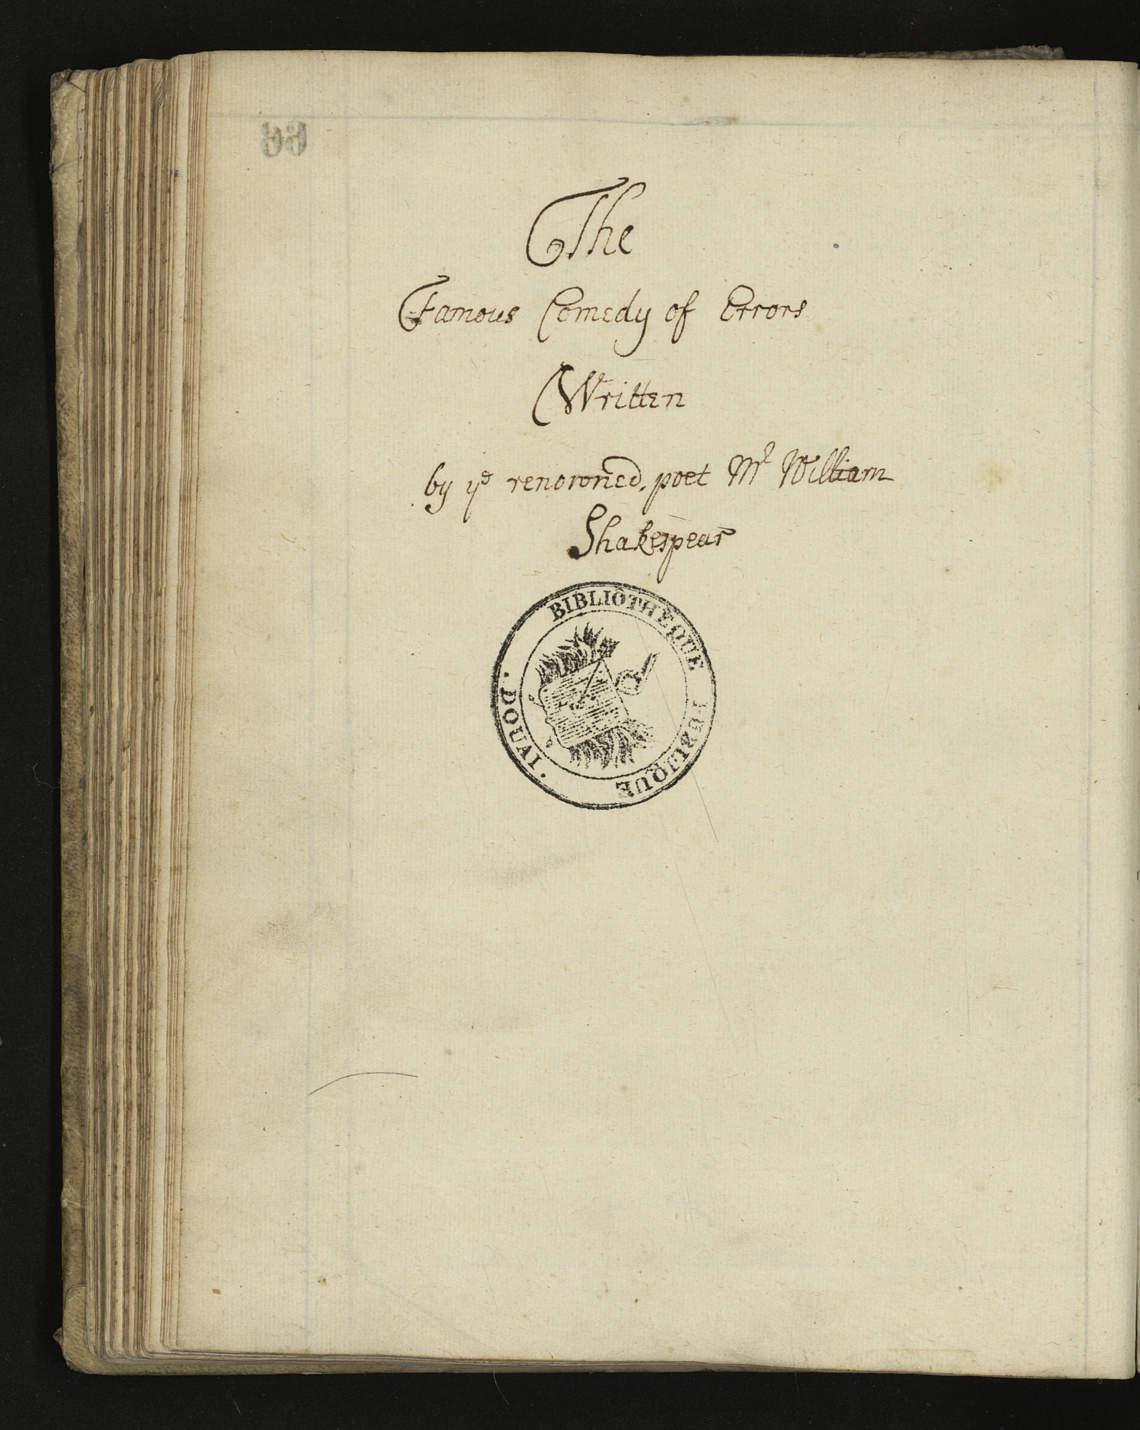 66
The
Famous Comedy of Errors
Written
by yᵉ renowned poet Mʳ William
Shakespear
BIBLIOTHEQUE PUBLIQUE
· DOUAI ·